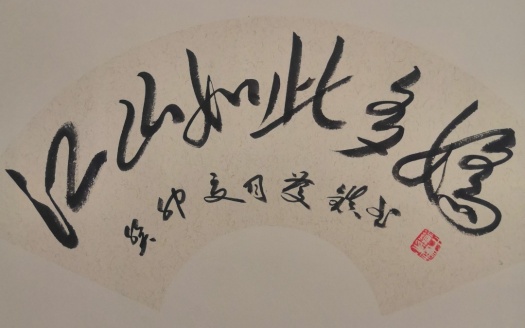 江山如此多娇
癸卯夏月黄铁书